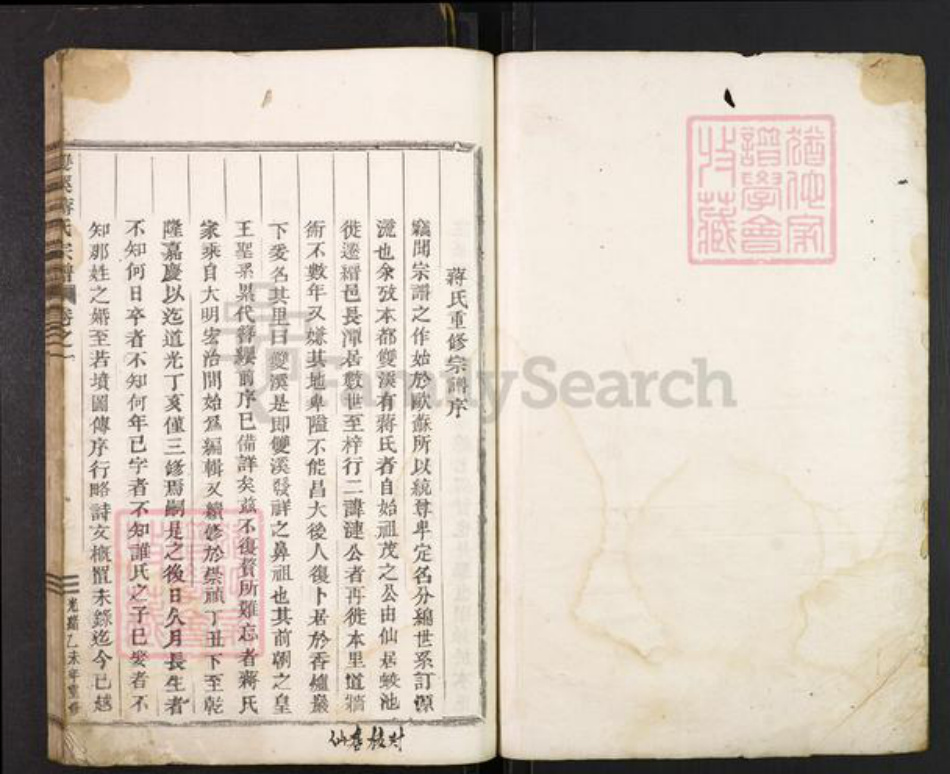 蔣氏重修宗譜序
竊聞宗譜之作始於歐蘇所以統尊卑定名分綿世系訂源
流也余攷本都雙溪有蔣氏者自始祖茂之公由仙居蛟池
徙遷縉邑長潭居數世至梓行二諱漣公者再徙本里道
術不數年又嫌其地卑隘不能昌大後人復卜居於香爐巖
下爰名其里曰雙溪是即雙溪發祥之鼻祖也其前朝之皇
王聖累累代簪纓前序已備詳矣茲不復贅所難忘者蔣氏
家乘自大明宏治間始爲編輯又續修於崇禎丁丑下至乾
隆嘉慶以迄道光丁亥僅三修焉嗣是之後日久月長生者
不知何日卒者不知何年已字者不知誰氏之子已娶者不
知那姓之婚至若墳圖傳序行略詩文概置未錄迄今已越
雙溪蔣氏宗譜 卷之一
光緒乙未年重修
仙居 校對
猶他家
譜學會
收藏
FamilySearch